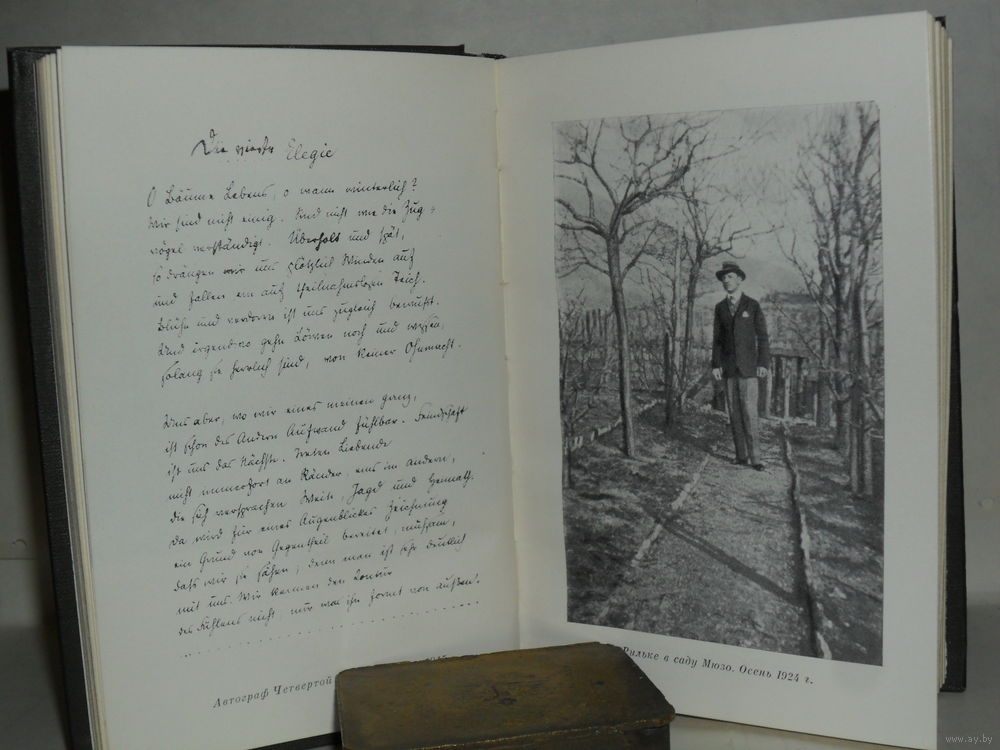 Die vierte Elegie
O Bäume Lebens, o wann winterlich?
Wir sind nicht einig. Sind nicht wie die Zug-
vögel verständigt. Überholt und spät,
so drängen wir uns plötzlich Winden auf
und fallen ein auf theilnahmslosen Teich.
Blühn und verdorrn ist uns zugleich bewußt.
Und irgendwo gehn Löwen noch und wissen,
solang sie herrlich sind, von keiner Ohnmacht.
Uns aber, wo wir eines meinen ganz,
ist schon des Andern Aufwand fühlbar. Feindschaft
ist uns das Nächste. Treten Liebende
nicht immerfort an Ränder, eins im andern,
die sich versprachen Weite, Jagd und Heimath.
Da wird für eines Augenblickes Zeichnung
ein Grund von Gegentheil bereitet, mühsam,
daß wir sie sähen; denn man ist sehr deutlich
mit uns. Wir kennen den Kontur
des Fühlens nicht, nur was ihn formt von außen.
Автограф Четвертой
Рильке в саду Мюзо. Осень 1924 г.
www.ay.by